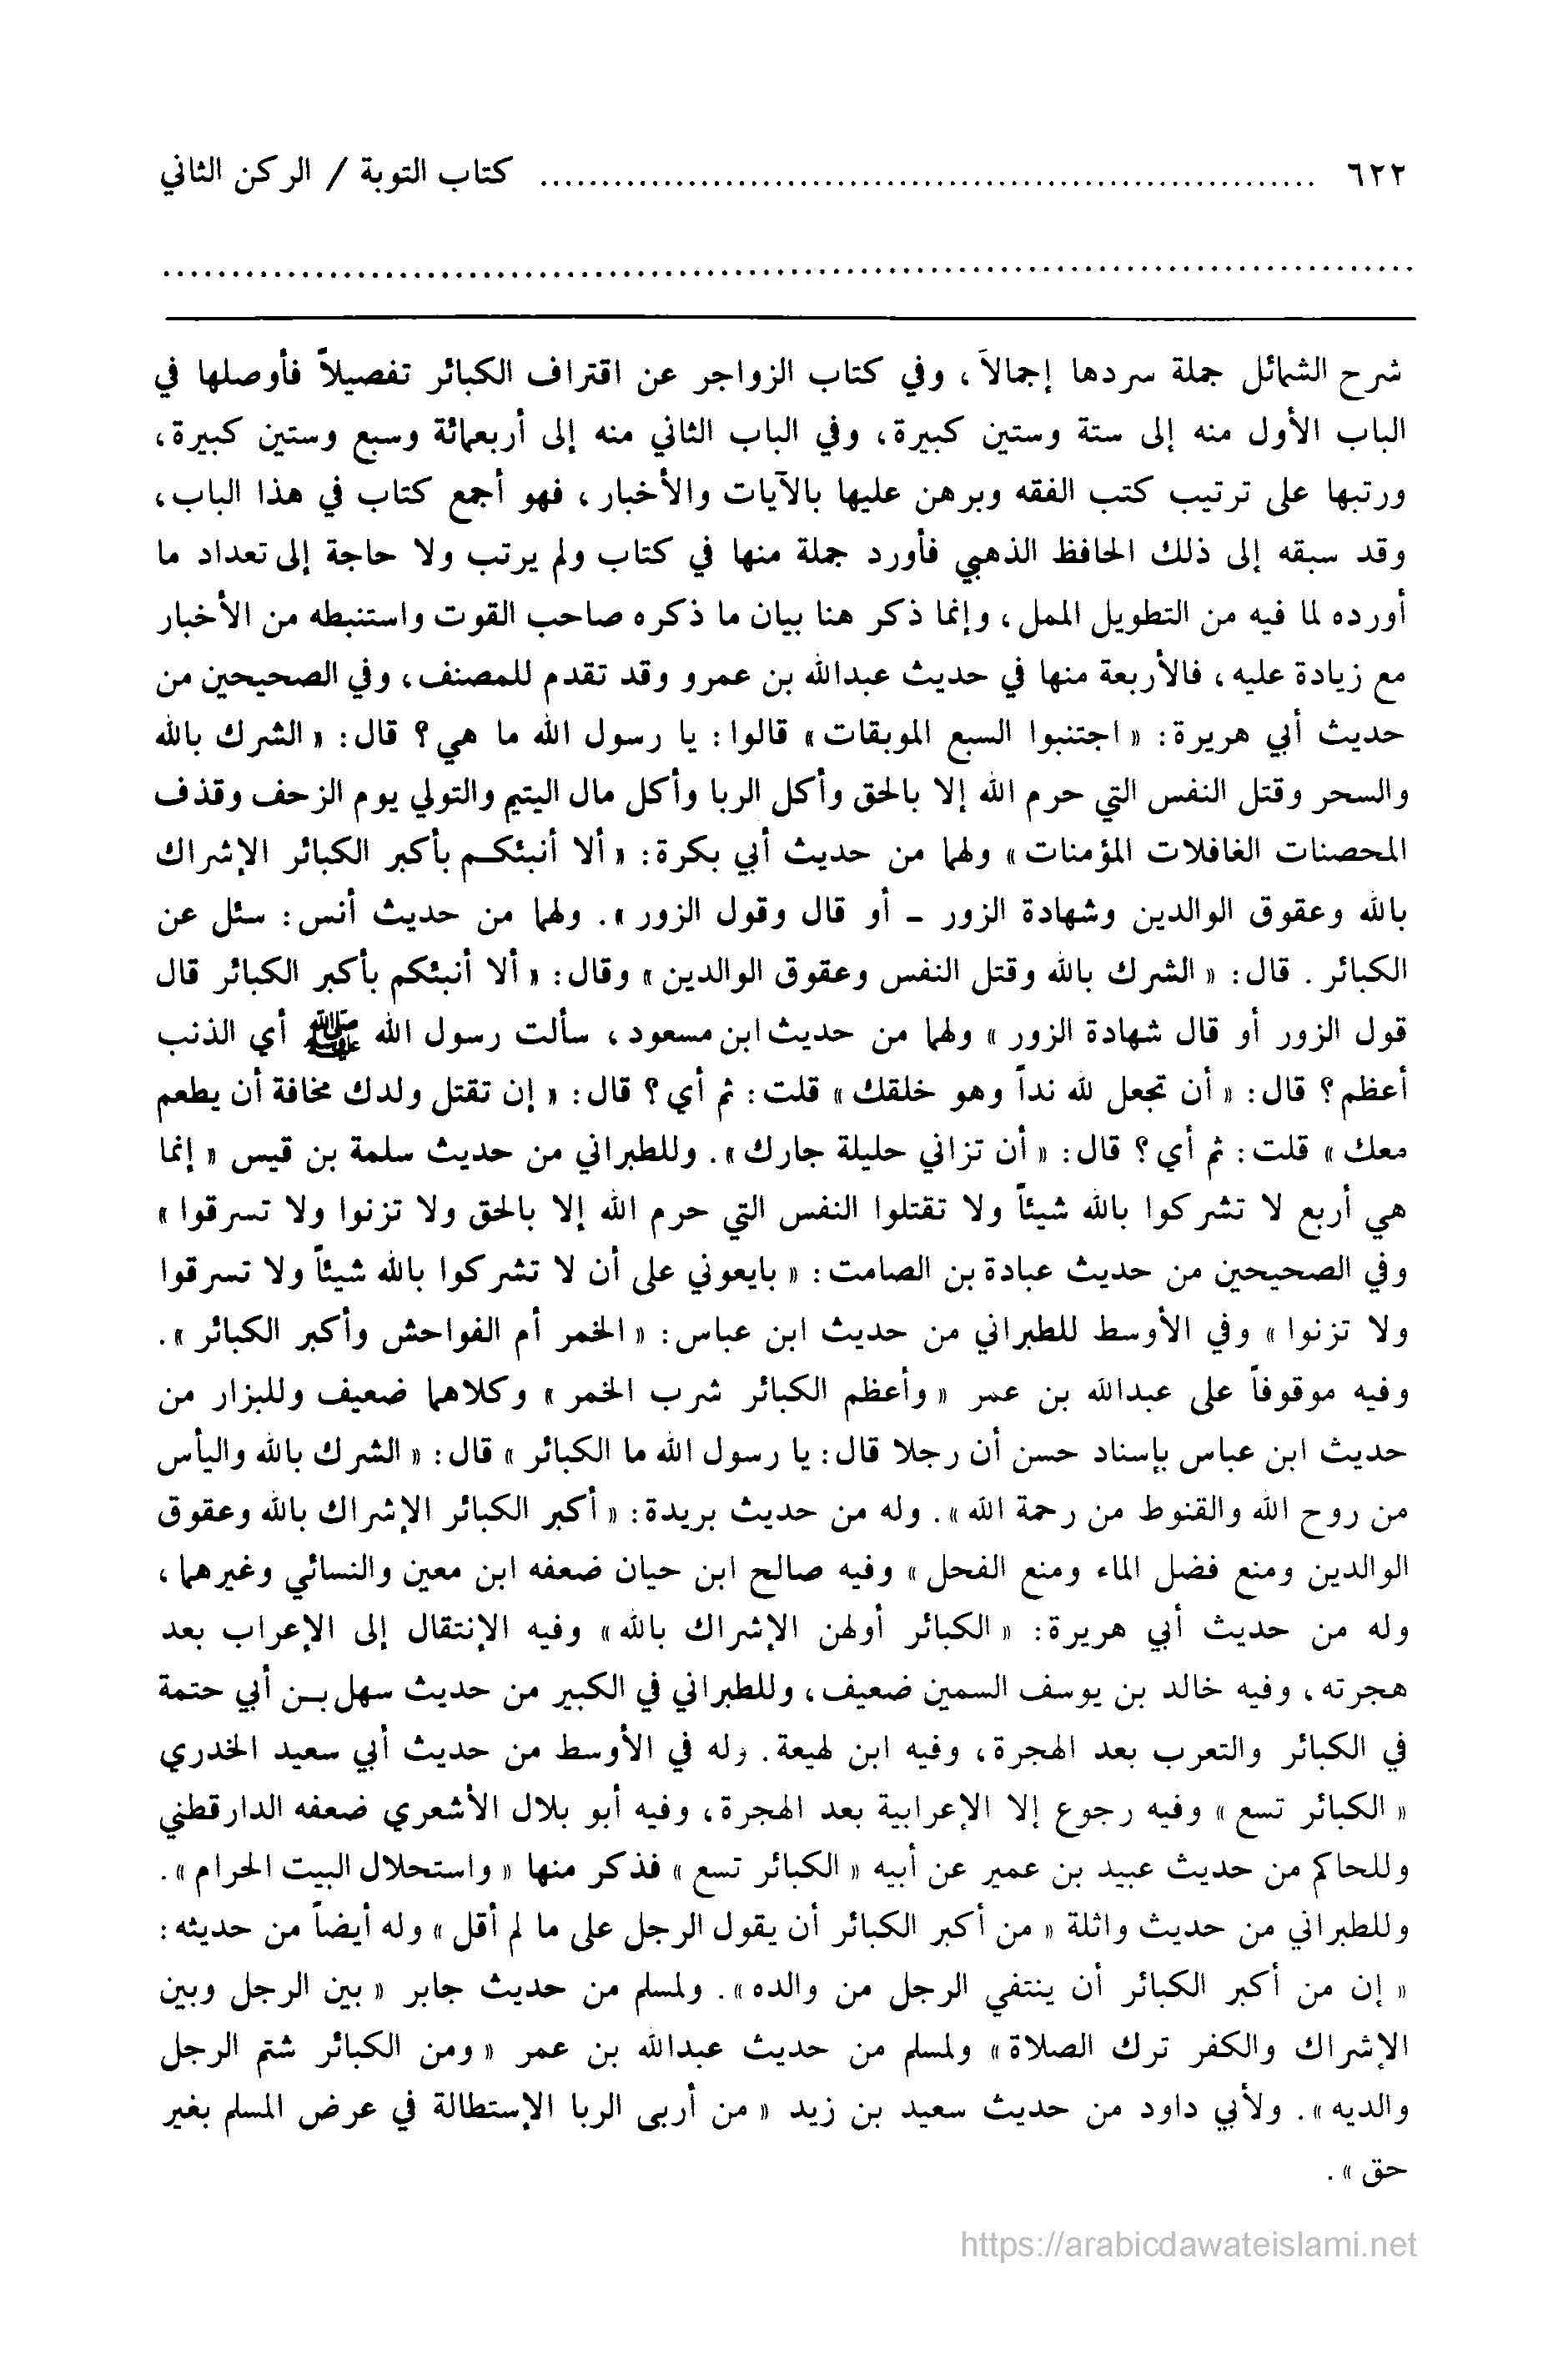 ٦٢٢ ................................................................ كتاب التوبة / الركن الثاني
................................................................................
شرح الشمائل جملة سردها إجمالاً ، وفي كتاب الزواجر عن اقتراف الكبائر تفصيلاً فأوصلها في
الباب الأول منه إلى ستة وستين كبيرة، وفي الباب الثاني منه إلى أربعمائة وسبع وستين كبيرة،
ورتبها على ترتيب كتب الفقه وبرهن عليها بالآيات والأخبار ، فهو أجمع كتاب في هذا الباب،
وقد سبقه إلى ذلك الحافظ الذهبي فأورد جملة منها في كتاب ولم يرتب ولا حاجة إلى تعداد ما
أورده لما فيه من التطويل الممل ، وإنما ذكر هنا بيان ما ذكره صاحب القوت واستنبطه من الأخبار
مع زيادة عليه ، فالأربعة منها في حديث عبدالله بن عمرو وقد تقدم للمصنف، وفي الصحيحين من
حديث أبي هريرة: « اجتنبوا السبع الموبقات» قالوا: يا رسول الله ما هي؟ قال: « الشرك بالله
والسحر وقتل النفس التي حرم الله إلا بالحق وأكل الربا وأكل مال اليتيم والتولي يوم الزحف وقذف
المحصنات الغافلات المؤمنات» ولهما من حديث أبي بكرة: « ألا أنبئكم بأكبر الكبائر الإشراك
بالله وعقوق الوالدين وشهادة الزور - أو قال وقول الزور ». ولهما من حديث أنس: سئل عن
الكبائر . قال: « الشرك بالله وقتل النفس وعقوق الوالدين » وقال: « ألا أنبئكم بأكبر الكبائر قال
قول الزور أو قال شهادة الزور » ولهما من حديث ابن مسعود ، سألت رسول الله ﷺ أي الذنب
أعظم؟ قال: « أن تجعل لله نداً وهو خلقك » قلت: ثم أي؟ قال: « إن تقتل ولدك مخافة أن يطعم
معك » قلت: ثم أي؟ قال: « أن تزاني حليلة جارك ». وللطبراني من حديث سلمة بن قيس « إنما
هي أربع لا تشركوا بالله شيئاً ولا تقتلوا النفس التي حرم الله إلا بالحق ولا تزنوا ولا تسرقوا »
وفي الصحيحين من حديث عبادة بن الصامت: « بايعوني على أن لا تشركوا بالله شيئاً ولا تسرقوا
ولا تزنوا » وفي الأوسط للطبراني من حديث ابن عباس: « الخمر أم الفواحش وأكبر الكبائر ».
وفيه موقوفاً على عبدالله بن عمر « وأعظم الكبائر شرب الخمر » وكلاهما ضعيف وللبزار من
حديث ابن عباس بإسناد حسن أن رجلا قال: يا رسول الله ما الكبائر » قال: « الشرك بالله واليأس
من روح الله والقنوط من رحمة الله ». وله من حديث بريدة: « أكبر الكبائر الإشراك بالله وعقوق
الوالدين ومنع فضل الماء ومنع الفحل » وفيه صالح ابن حيان ضعفه ابن معين والنسائي وغيرهما ،
وله من حديث أبي هريرة: « الكبائر أولهن الإشراك بالله» وفيه الإنتقال إلى الإعراب بعد
هجرته ، وفيه خالد بن يوسف السمين ضعيف، وللطبراني في الكبير من حديث سهل بن أبي حتمة
في الكبائر والتعرب بعد الهجرة، وفيه ابن لهيعة. وله في الأوسط من حديث أبي سعيد الخدري
« الكبائر تسع » وفيه رجوع إلا الإعرابية بعد الهجرة، وفيه أبو بلال الأشعري ضعفه الدارقطني
وللحاكم من حديث عبيد بن عمير عن أبيه « الكبائر تسع » فذكر منها « واستحلال البيت الحرام ».
وللطبراني من حديث واثلة « من أكبر الكبائر أن يقول الرجل على ما لم أقل » وله أيضاً من حديثه:
« إن من أكبر الكبائر أن ينتفي الرجل من والده ». ولمسلم من حديث جابر « بين الرجل وبين
الإشراك والكفر ترك الصلاة» ولمسلم من حديث عبدالله بن عمر « ومن الكبائر شتم الرجل
والديه ». ولأبي داود من حديث سعيد بن زيد « من أربى الربا الإستطالة في عرض المسلم بغير
حق ».
https://arabicdawateislami.net